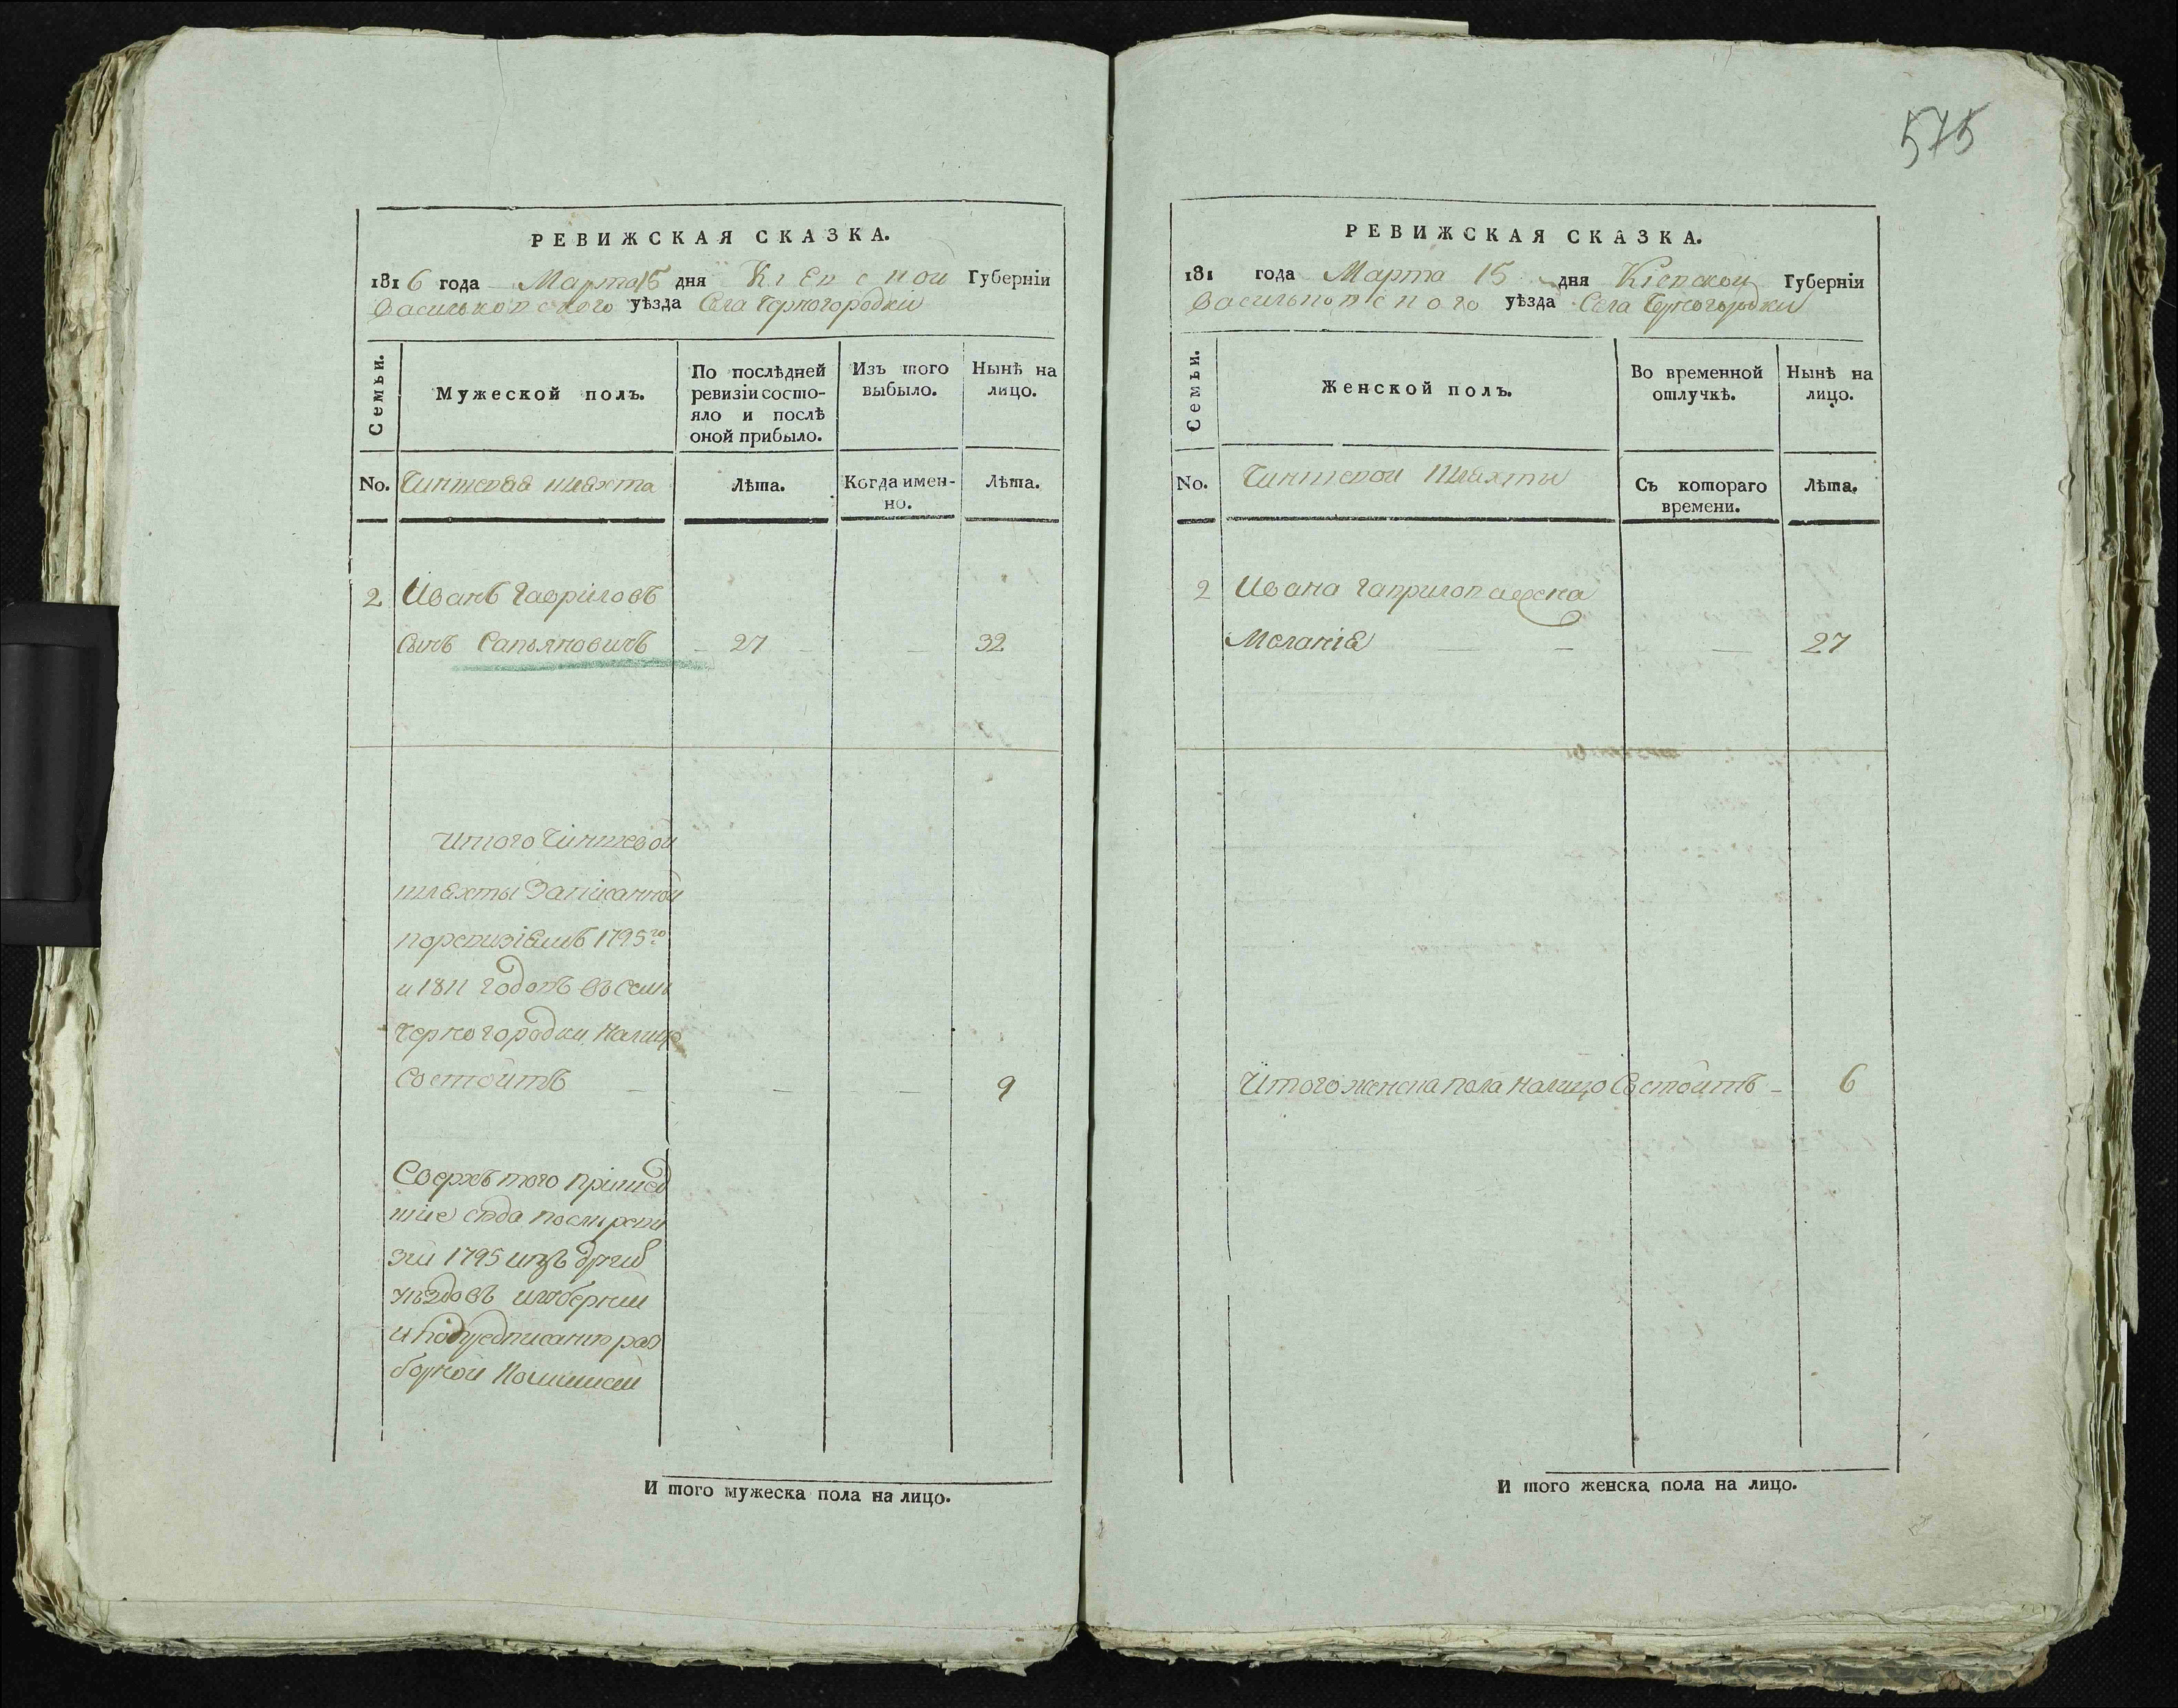 575
РЕВИЖСКАЯ СКАЗКА.
1816 года Марта 15 дня Кіевской Губерніи
Васильковского уѣзда Села Черногородки
Семьи.
Мужеской полъ.
По послѣдней
ревизіи состо-
яло и послѣ
оной прибыло.
Изъ того
выбыло.
Нынѣ на
лицо.
No. Чиншевая шляхта
Лѣта.
Когда имен-
но.
Лѣта.
2 Иванъ Гавриловъ
Сынъ Сапьяновичъ 27 32
Итого Чиншевой
шляхты Записанной
поревизіямъ 1795го
и 1811 годовъ въ селѣ
Черногородки налицо
Состоитъ 9
Сверхъ того пришед
шіе сюда послѣ реви
зіи 1795 изъ другихъ
уѣздовъ игуберній
и раз
борной Комиссіи
И того мужеска пола на лицо.
РЕВИЖСКАЯ СКАЗКА.
181 года Марта 15 дня Кіевской Губерніи
Васильковского уѣзда Села Черногородки
Семьи.
Женской полъ.
Во временной
отлучкѣ.
Нынѣ на
лицо.
No. Чиншевой Шляхты
Съ котораго
времени.
Лѣта.
2 Ивана Гаврилова жена
Меланія 27
Итого женска пола налицо Состоитъ 6
И того женска пола на лицо.